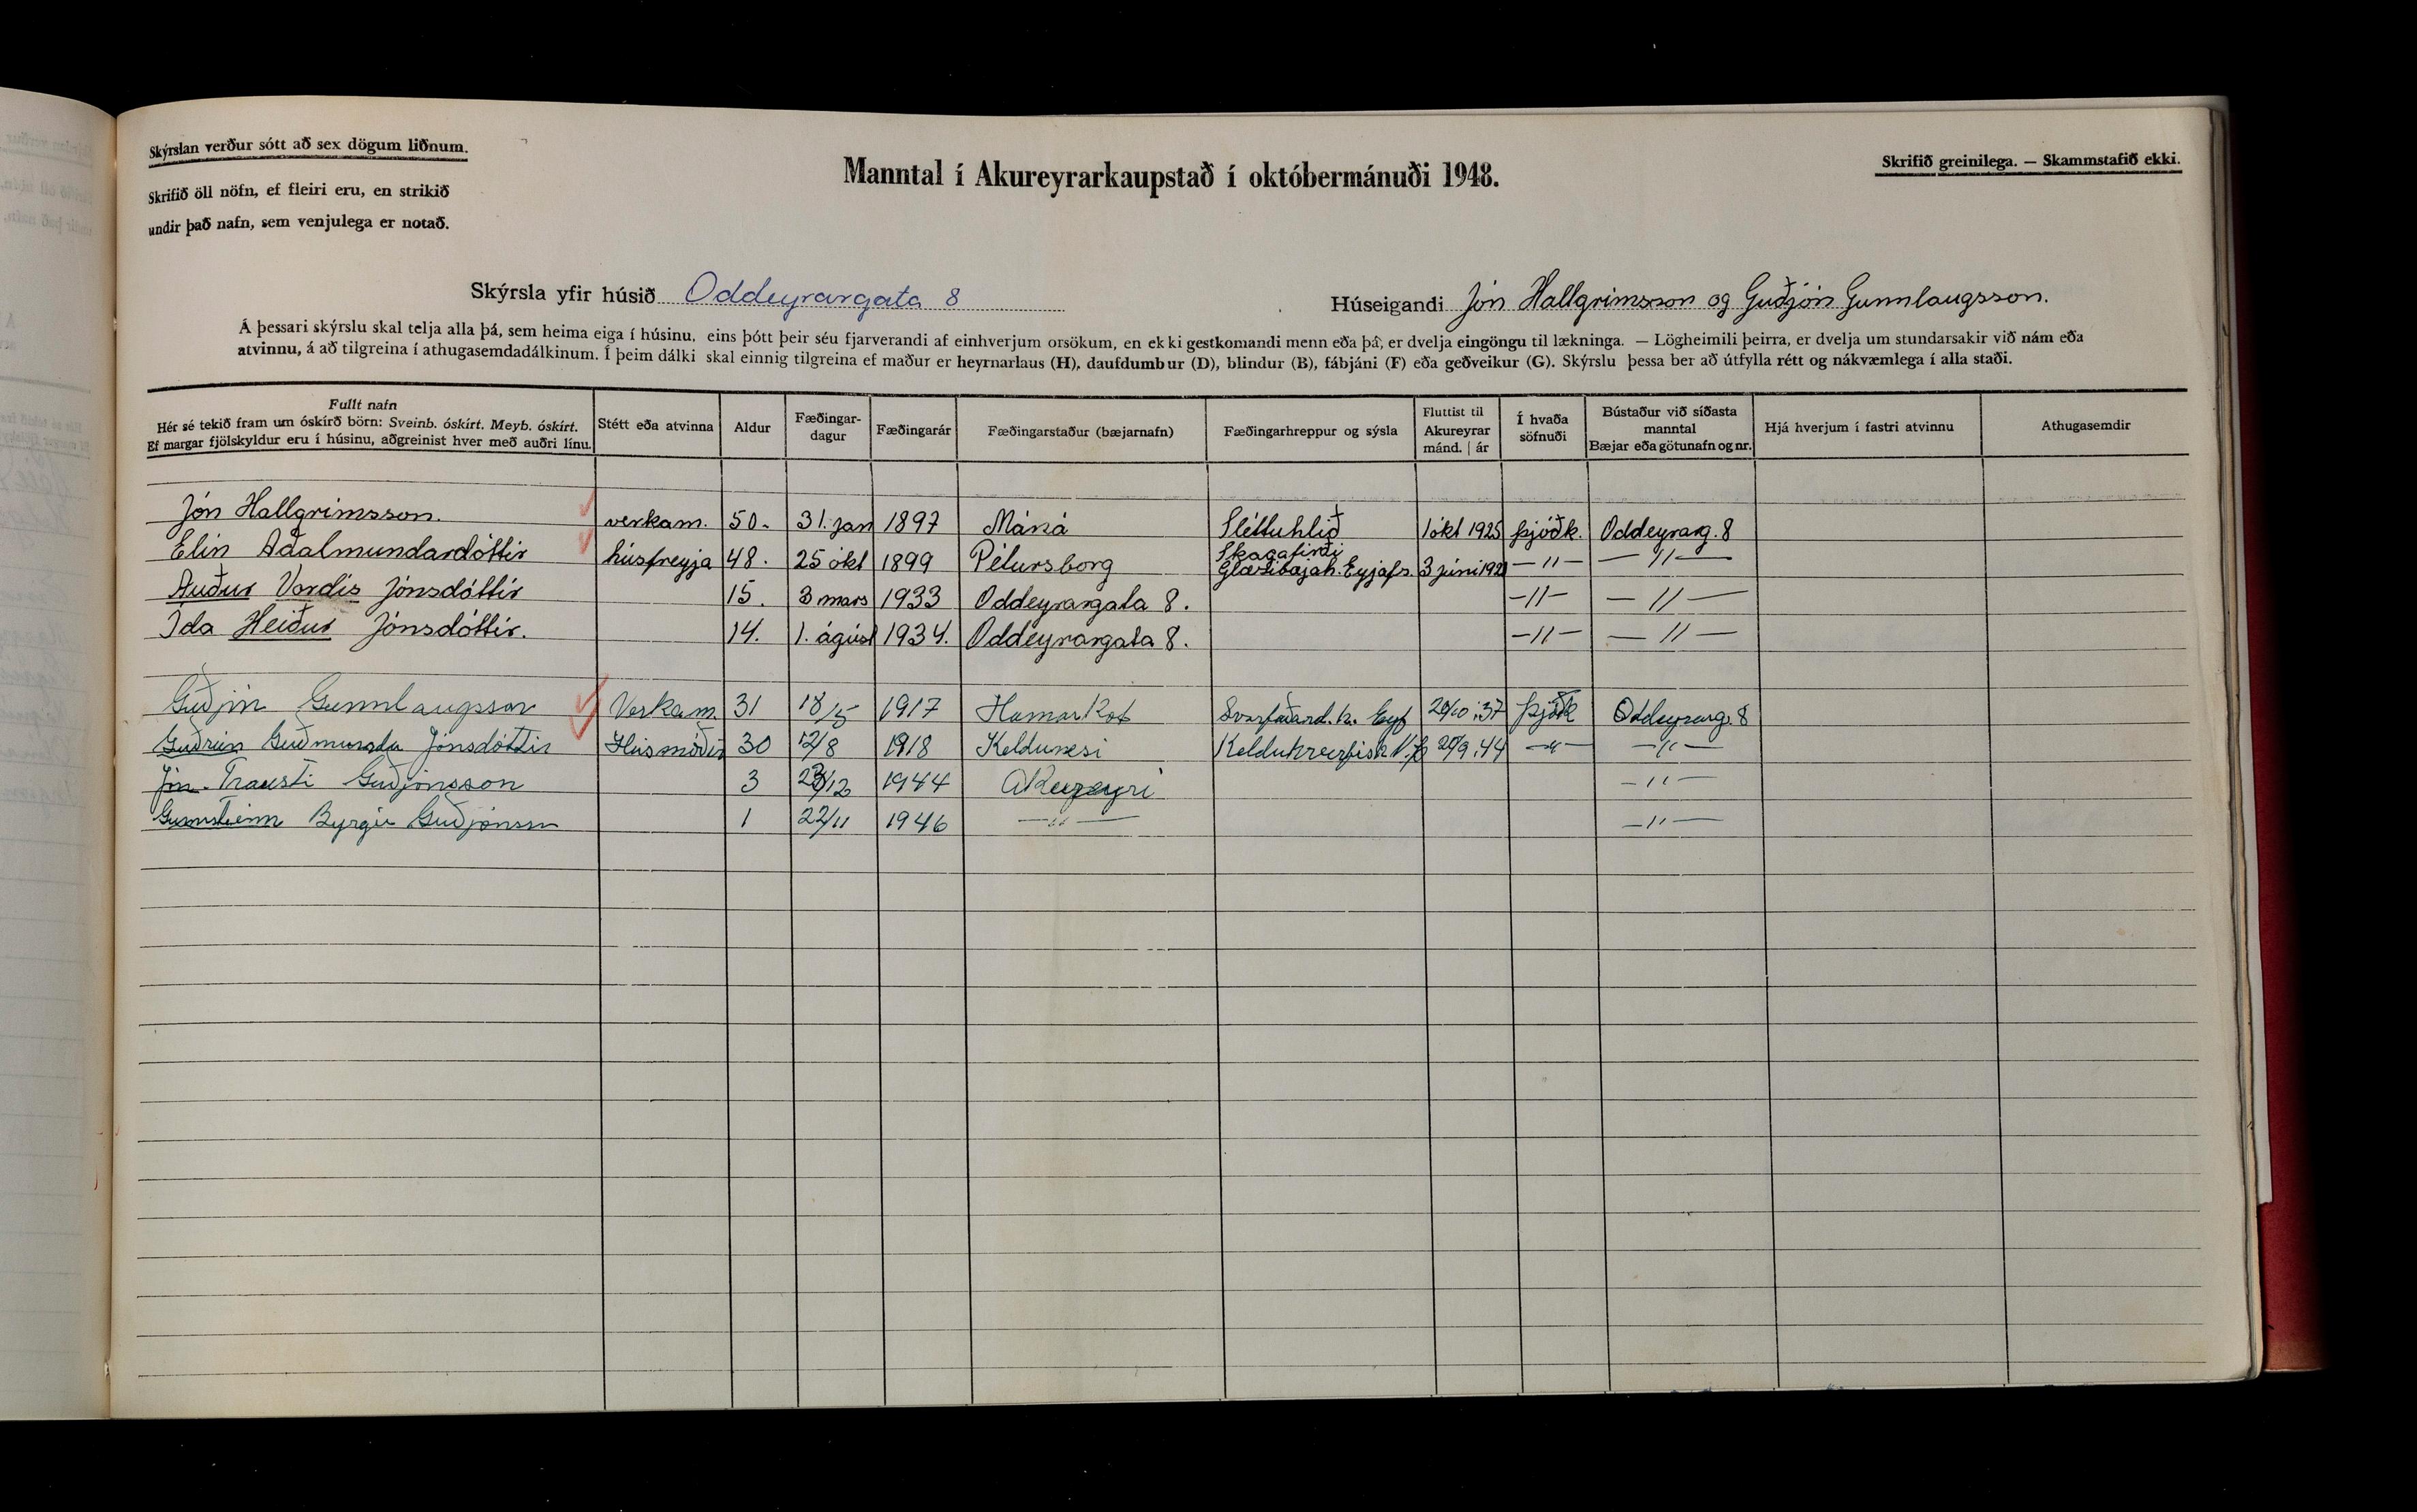 Skýrslan verður sótt að sex dögum liðnum.
Skrifið öll nöfn, ef fleiri eru, en strikið
undir það nafn, sem venjulega er notað.
Manntal í Akureyrarkaupstað í októbermánuði 1948.
Skrifið greinilega. — Skammstafið ekki.
Skýrsla yfir húsið Oddeyrargata 8
Húseigandi Jón Hallgrimsson og Guðjón Gunnlaugsson.
Á þessari skýrslu skal telja alla þá, sem heima eiga í húsinu, eins þótt þeir séu fjarverandi af einhverjum orsökum, en ekki gestkomandi menn eða þá, er dvelja eingöngu til lækninga. — Lögheimili þeirra, er dvelja um stundarsakir við nám eða
atvinnu, á að tilgreina í athugasemdadálkinum. Í þeim dálki skal einnig tilgreina ef maður er heyrnarlaus (H), daufdumbur (D), blindur (B), fábjáni (F) eða geðveikur (G). Skýrslu þessa ber að útfylla rétt og nákvæmlega í alla staði.
Fullt nafn
Hér sé tekið fram um óskírð börn: Sveinb. óskírt. Meyb. óskírt.
Ef margar fjölskyldur eru í húsinu, aðgreinist hver með auðri línu.
Stétt eða atvinna
Aldur
Fæðingar-
dagur
Fæðingarár
Fæðingarstaður (bæjarnafn)
Fæðingarhreppur og sýsla
Fluttist til
Akureyrar
mánd. | ár
Í hvaða
söfnuði
Bústaður við síðasta
manntal
Bæjar eða götunafn og nr.
Hjá hverjum í fastri atvinnu
Athugasemdir
Jón Hallgrimsson. verkam. 50. 31. jan 1897 Máná Sléttuhlið 1 okt 1925 þjóðk. Oddeyrarg. 8
Skagafirði
Elin Aðalmundardóttir húsfreyja 48. 25 okt 1899 Pétursborg Glæsibæjah. Eyjafs. 3 júni 192 —〃— —〃—
Auður Vordis Jónsdóttir 15. 3 mars 1933 Oddeyrargata 8. —〃— —〃—
Ida Heiður Jónsdóttir. 14. 1. ágúst 1934. Oddeyrargata 8. —〃— —〃—
Guðjón Gunnlaugsson Verkam. 31 18/5 1917 Hamarkot Svarfaðard.h. Eyf 20/10 '37 þjóðk Oddeyrarg. 8
Guðrún Guðmunda Jónsdóttir Húsmóðir 30 12/8 1918 Keldunesi 20/9 '44 —〃— —〃—
Jón Trausti Guðjónsson 3 /12 1944 Akureyri —〃—
Gunnsteinn Byrgir Guðjónssn 1 22/11 1946 —〃— —〃—